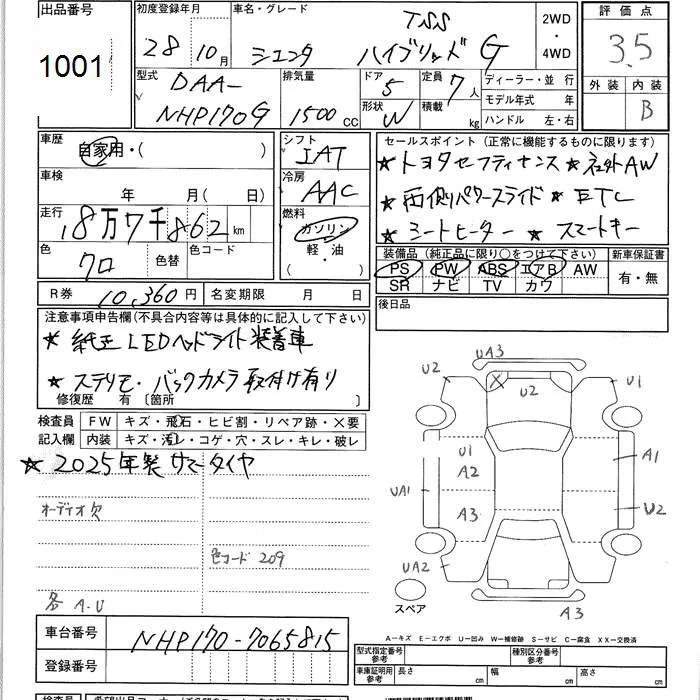 出品番号 初度登録年月 車名・グレード 2WD・4WD 評価点
1001 28年10月 シエンタ TSS ハイブリッド G 3.5
型式 排気量 ドア 定員 ディーラー・並行 外装 内装
DAA-NHP170G 1500cc 5 7人 モデル年式 年 B
形状 W 積載 kg ハンドル 左・右
車歴 自家用・( ) シフト IAT セールスポイント (正常に機能するものに限ります)
車検 年 月( 日) 冷房 AAC ★トヨタセーフティセンス ★社外AW
走行 18万7千862km 燃料 ガソリン 軽・油 ( ・ ) ★両側パワースライド ★ETC
★シートヒーター ★スマートキー
色 クロ 色替 色コード 装備品 (純正品に限り○をつけて下さい) 新車保証書
PS PW ABS エアB AW 有・無
SR ナビ TV カワ
R券 10,360円 名変期限 月 日 後日品
注意事項申告欄(不具合内容等は具体的に記入して下さい)
★純正LEDヘッドライト装着車
★ステリモ・バックカメラ取付け有り
修復歴 有〔箇所 〕
検査員 FW キズ・飛石・ヒビ割・リペア跡・×要
記入欄 内装 キズ・汚レ・コゲ・穴・スレ・キレ・破レ
★2025年製サマータイヤ
オーディオ欠
色コード 209
各A.U
UA3
U2 U2 U1
U1 A1
A2
UA1 A3 U2
UA2
A3
スペア
A-キズ E-エクボ U-凹み W-補修跡 S-サビ C-腐食 XX-交換済
車台番号 NHP170-7065815
型式指定番号 参考 種別区分番号 参考
登録番号 車庫証明用 参考 長さ cm 幅 cm 高さ cm
検査員